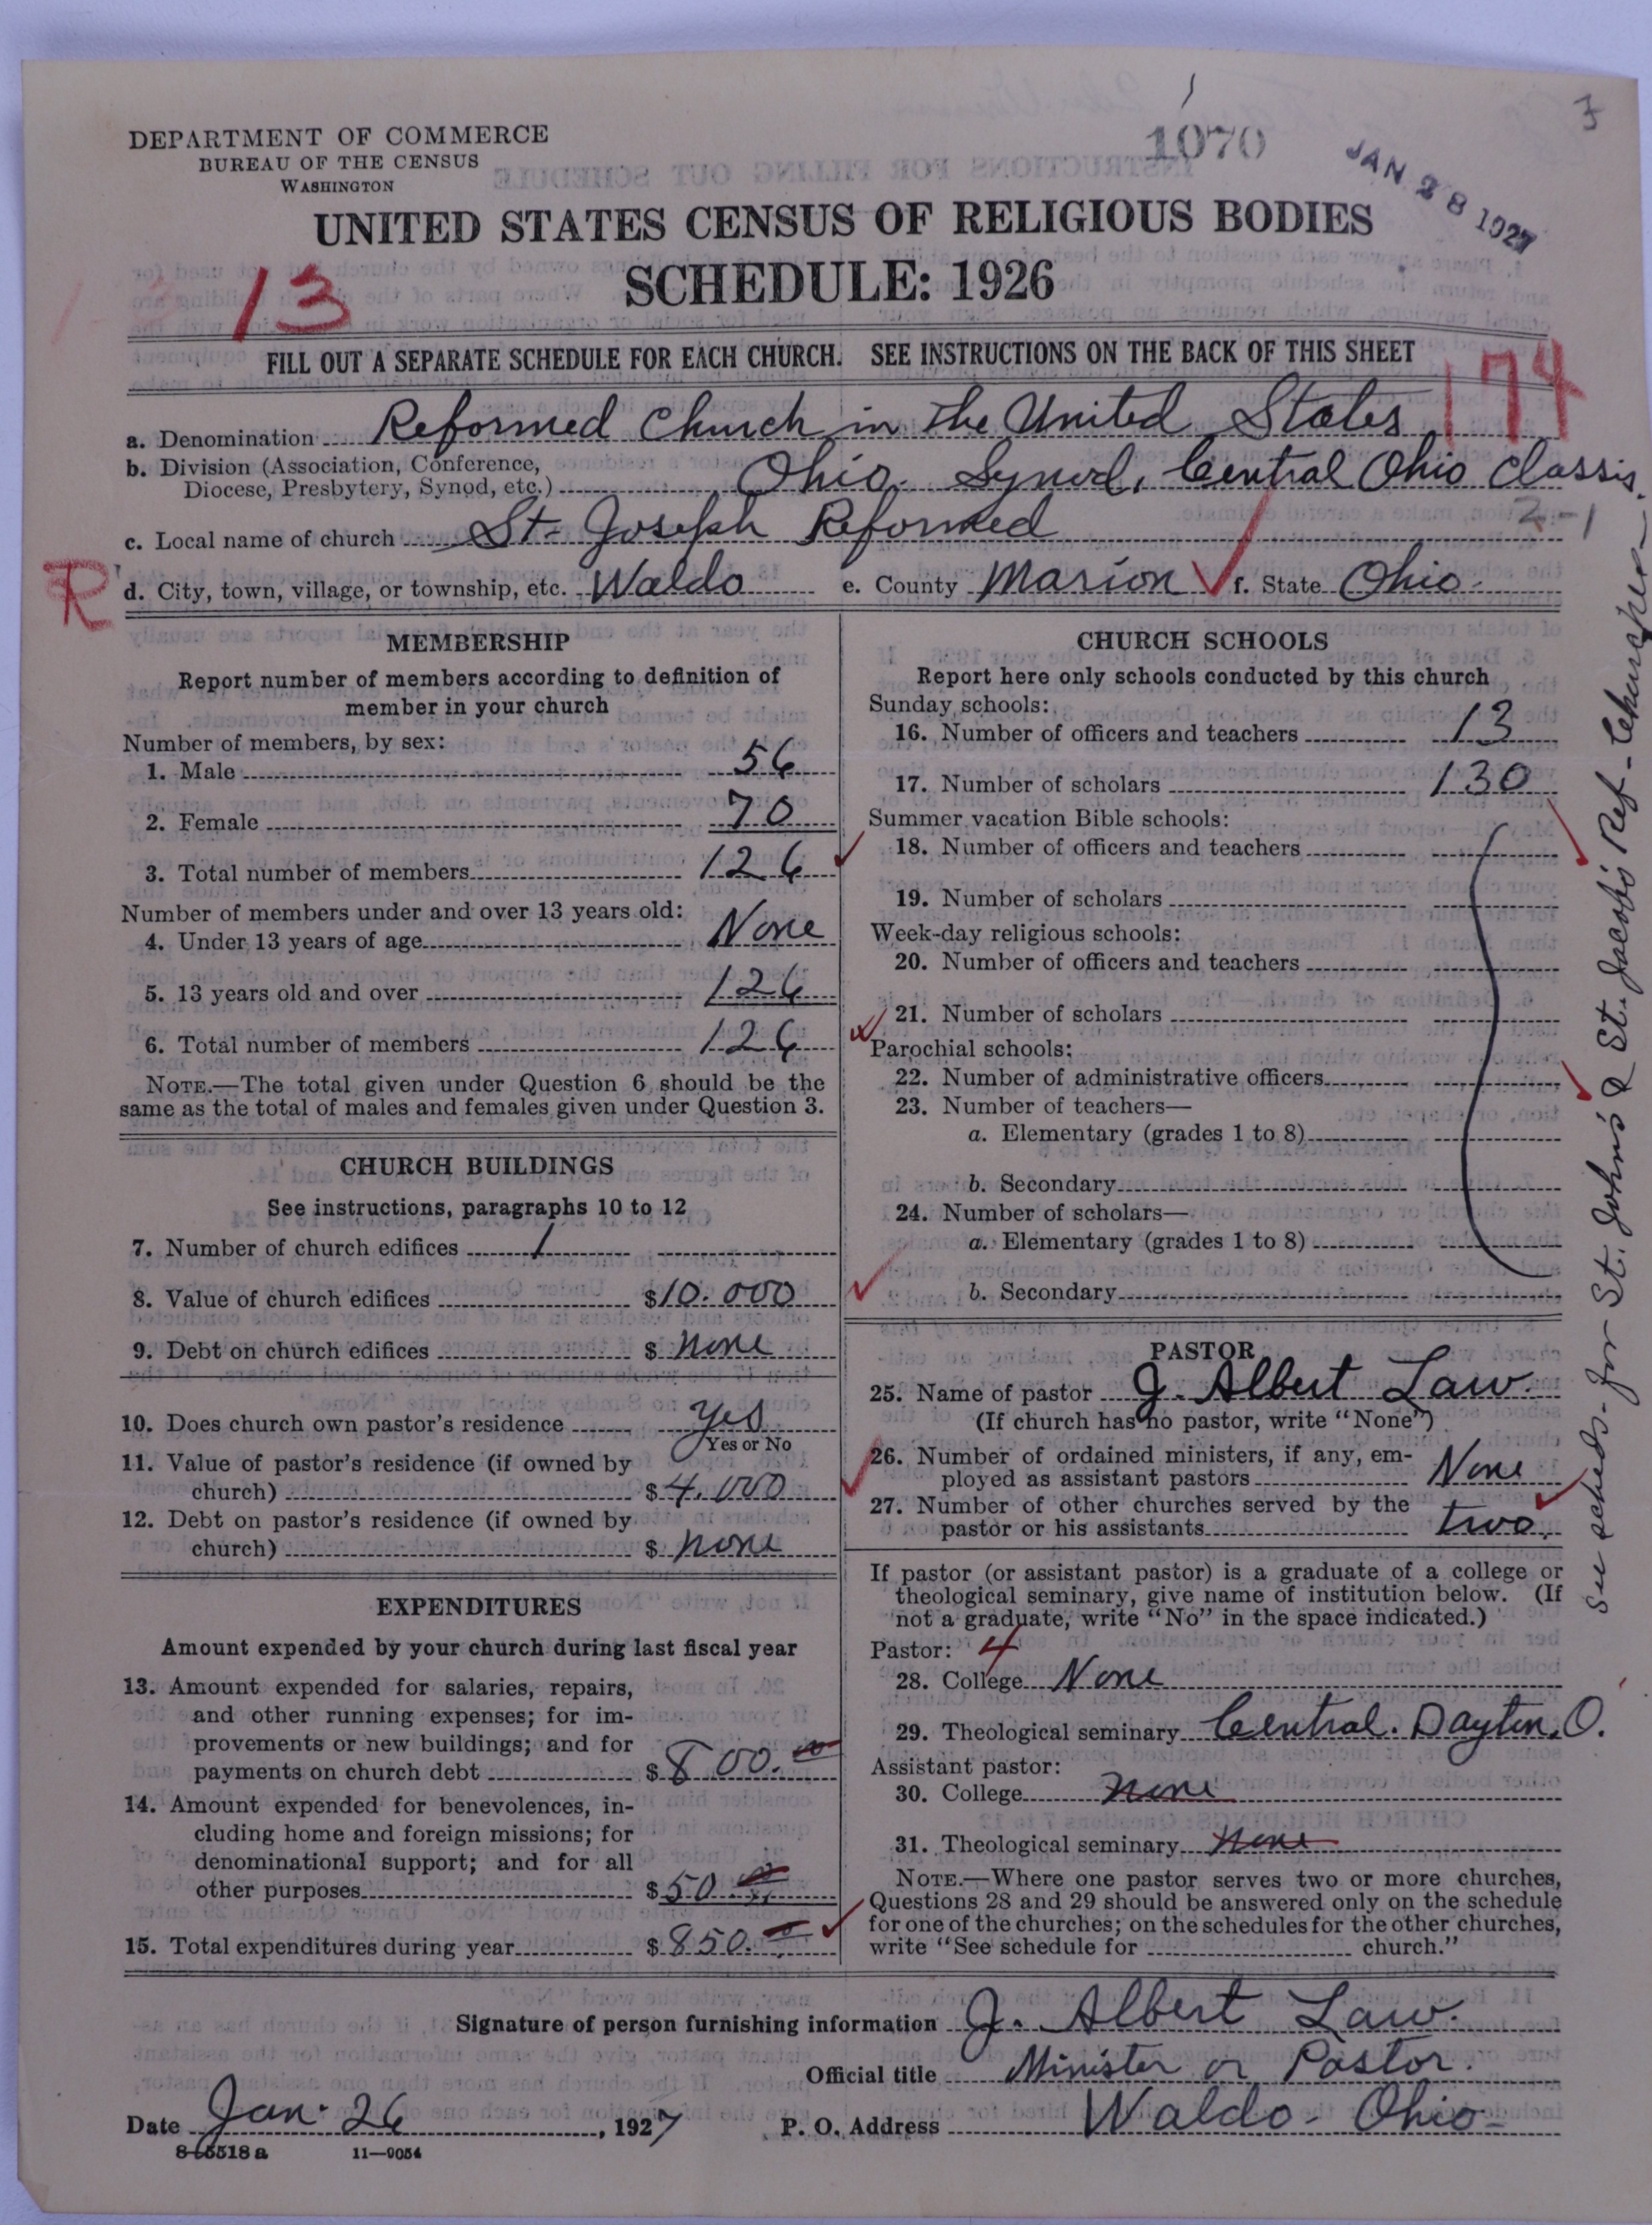 1070
3
JAN 28 1927
DEPARTMENT OF COMMERCE
BUREAU OF THE CENSUS
WASHINGTON
UNITED STATES CENSUS OF RELIGIOUS BODIES
SCHEDULE: 1926
13
FILL OUT A SEPARATE SCHEDULE FOR EACH CHURCH. SEE INSTRUCTIONS ON THE BACK OF THIS SHEET
174
a. Denomination Reformed Church in the United States
b. Division (Association, Conference,
Diocese, Presbytery, Synod, etc.) Ohio Synod, Central Ohio Classis.
c. Local name of church St- Joseph Reformed
2-1
R
d. City, town, village, or township, etc. Waldo e. County Marion f. State Ohio.
MEMBERSHIP
Report number of members according to definition of
member in your church
Number of members, by sex:
1. Male 56
2. Female 70
3. Total number of members 126
Number of members under and over 13 years old:
4. Under 13 years of age None
5. 13 years old and over 126
6. Total number of members 126
NOTE.—The total given under Question 6 should be the
same as the total of males and females given under Question 3.
CHURCH BUILDINGS
See instructions, paragraphs 10 to 12
7. Number of church edifices 1
8. Value of church edifices $10.000
9. Debt on church edifices $ none
10. Does church own pastor's residence Yes
Yes or No
11. Value of pastor's residence (if owned by
church) $4.000
12. Debt on pastor's residence (if owned by
church) $ none
EXPENDITURES
Amount expended by your church during last fiscal year
13. Amount expended for salaries, repairs,
and other running expenses; for im-
provements or new buildings; and for
payments on church debt $800.00
14. Amount expended for benevolences, in-
cluding home and foreign missions; for
denominational support; and for all
other purposes $50.00
15. Total expenditures during year $850.00
CHURCH SCHOOLS
Report here only schools conducted by this church
Sunday schools:
16. Number of officers and teachers 13
17. Number of scholars 130
Summer vacation Bible schools:
18. Number of officers and teachers
19. Number of scholars
Week-day religious schools:
20. Number of officers and teachers
21. Number of scholars
Parochial schools:
22. Number of administrative officers
23. Number of teachers—
a. Elementary (grades 1 to 8)
b. Secondary
24. Number of scholars—
a. Elementary (grades 1 to 8)
b. Secondary
PASTOR
25. Name of pastor J. Albert Law.
(If church has no pastor, write "None")
26. Number of ordained ministers, if any, em-
ployed as assistant pastors None
27. Number of other churches served by the
pastor or his assistants two.
If pastor (or assistant pastor) is a graduate of a college or
theological seminary, give name of institution below. (If
not a graduate, write "No" in the space indicated.)
Pastor: 4
28. College None
29. Theological seminary Central. Dayton, O.
Assistant pastor:
30. College none
31. Theological seminary none
NOTE.—Where one pastor serves two or more churches,
Questions 28 and 29 should be answered only on the schedule
for one of the churches; on the schedules for the other churches,
write "See schedule for church."
See scheds. for St. John's & St. Jacob's Ref. Churches
Signature of person furnishing information J. Albert Law.
Official title Minister or Pastor.
Date Jan. 26, 1927 P. O. Address Waldo - Ohio-
8-5518 a 11—9054